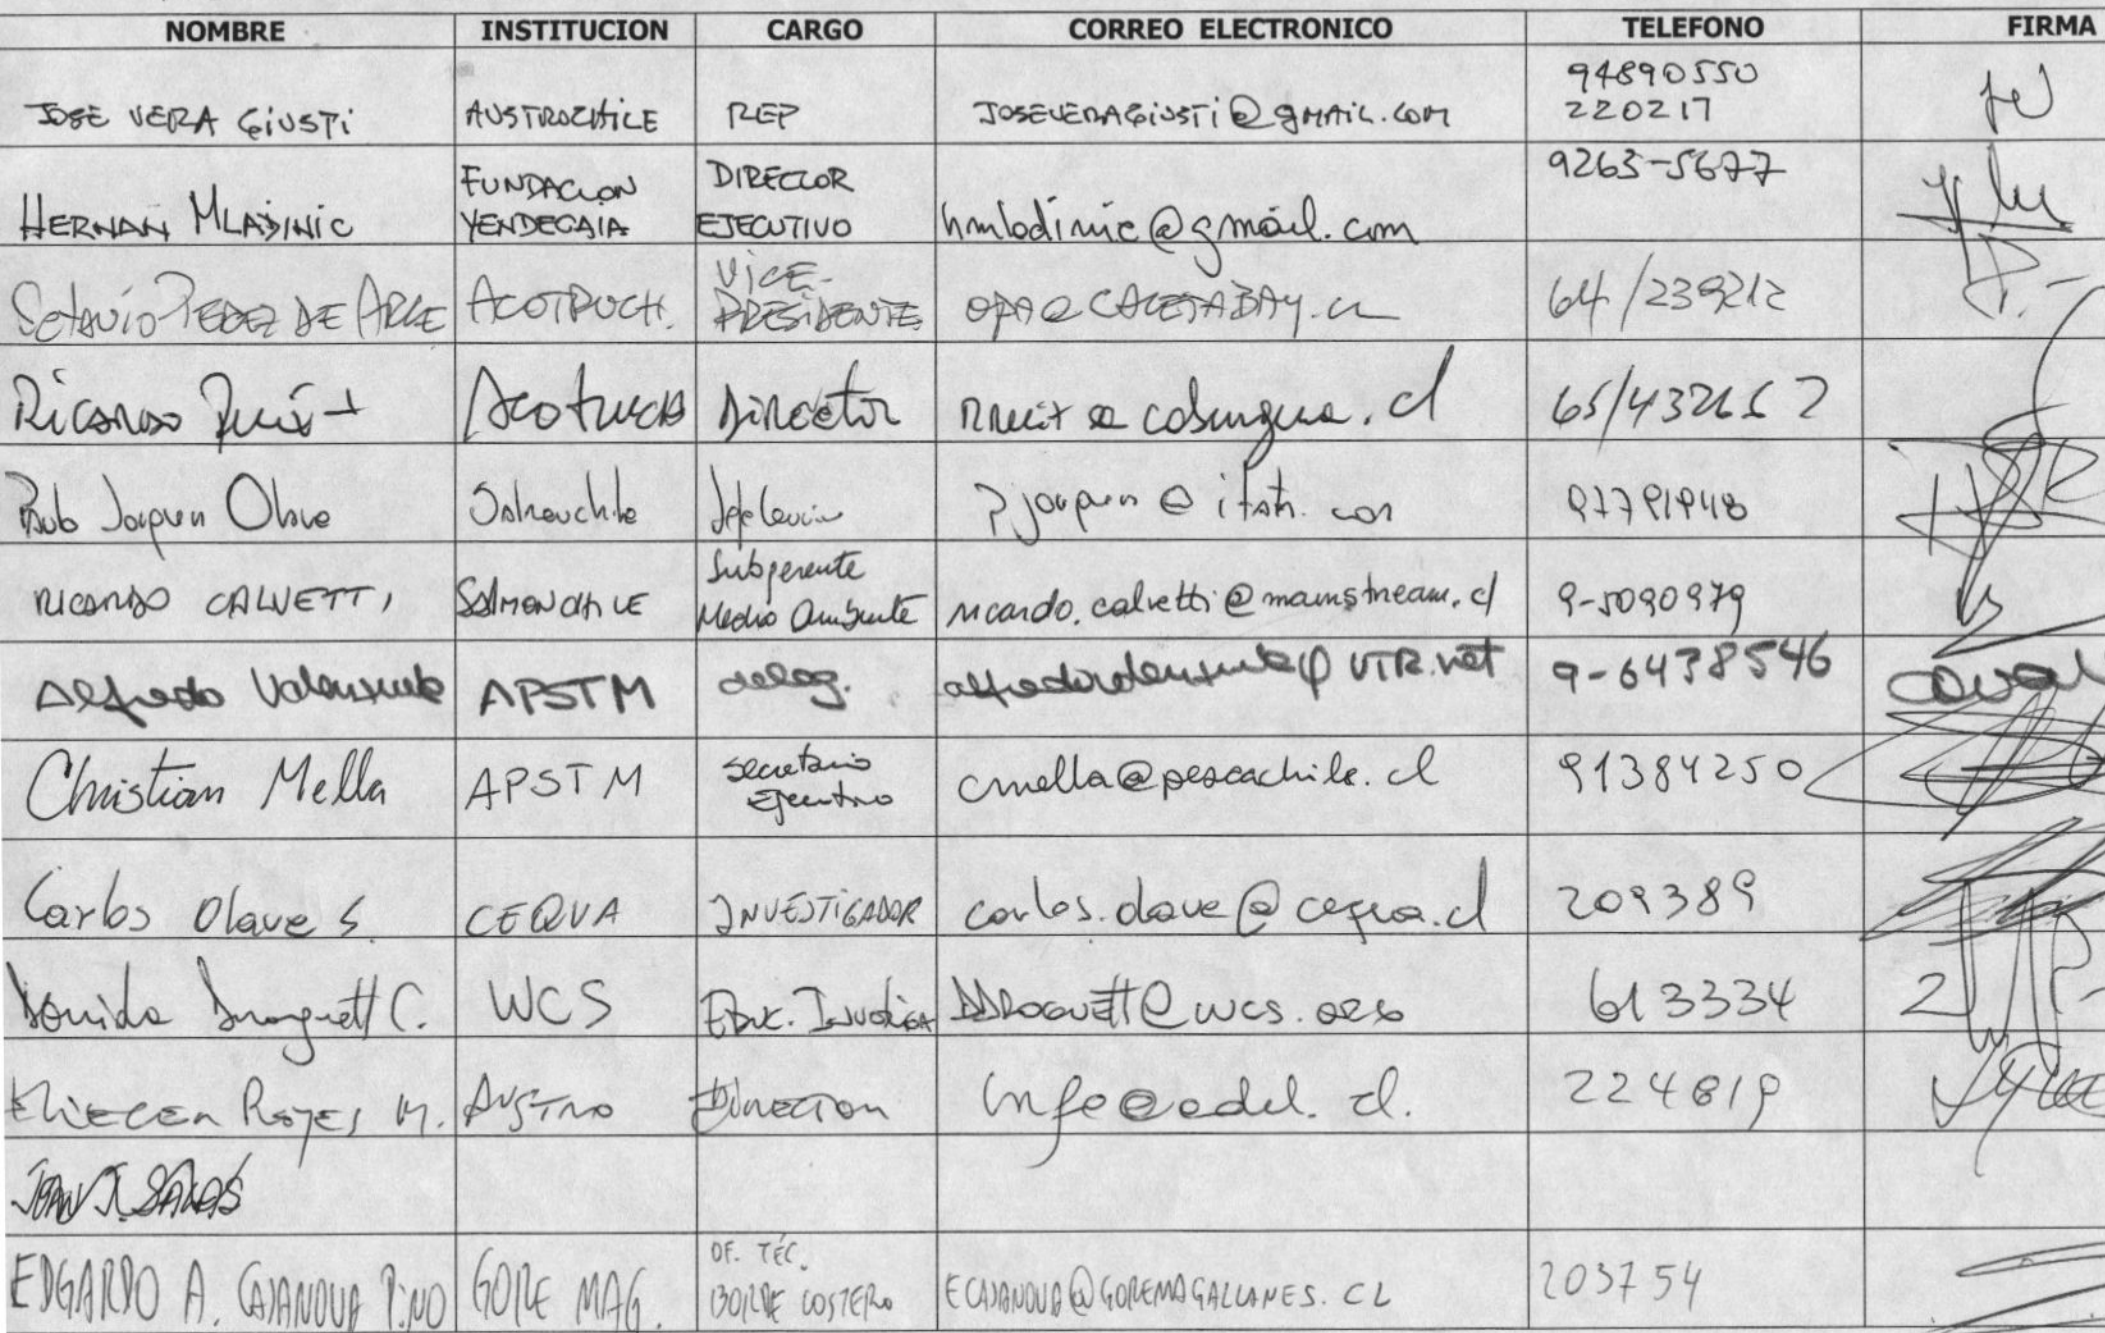 NOMBRE INSTITUCION CARGO CORREO ELECTRONICO TELEFONO FIRMA
JOSE VERA GiUSTi AUSTROCHILE REP JOSEVERAGiUSTi@gmAiL.COM 94890550
220217
HERNAN MLADINIC FUNDACION YENDEGAIA DIRECTOR EJECUTIVO hmladinic@gmail.com 9263-5677
PEREZ DE ARCE ACOTRUCH. ViCE-PRESiDENTE OPA@CALETABAY.CL 64/239212
Ricardo Acotruch Director 65/432652
Joaquin Salmonchile 97791948
RICARDO CALVETTI SALMONCHILE Subgerente Medio Ambiente ricardo.calvetti@mainstream.cl 9-5090979
Alfredo Valenzuela APSTM deleg. alfredovalenzuela@VTR.net 9-6438546
Christian Mella APSTM Secretario Ejecutivo cmella@pescachile.cl 91384250
Carlos Olave S. CEQUA INVESTiGADOR carlos.olave@cequa.cl 209389
Droguett C. WCS EDUC. DDROGUETT@WCS.ORG 613334
Eliecer Reyes M. AUSTRO Director 224819
JUAN J. SALAS
EDGARDO A. CASANOVA PiNO GORE MAG. OF. TÉC. BORDE COSTERO ECASANOVA@GOREMAGALLANES.CL 203754